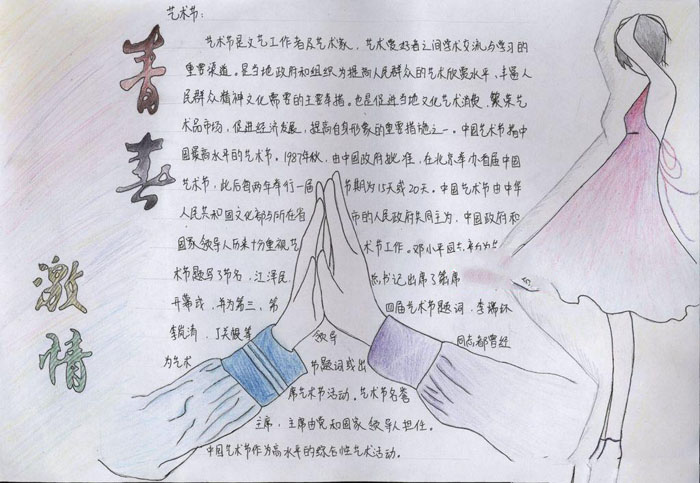 青春
激情
艺术节:
艺术节是文艺工作者及艺术家,艺术爱好者之间学术交流与学习的
重要渠道。是当地政府和组织为提高人民群众的艺术欣赏水平,丰富人
民群众精神文化需要的主要举措。也是促进当地文化艺术消费,繁荣艺
术品市场,促进经济发展,提高自身形象的重要措施之一。中国艺术节指中
国最高水平的艺术节。1987年秋,由中国政府批准,在北京举办首届中国
艺术节,此后每两年举行一届 节期为15天或20天。中国艺术节由中华
人民共和国文化部与所在省 市的人民政府共同主办,中国政府和
国家领导人历来十分重视艺 术节工作。邓小平同志
术节题写了节名,江泽民 总书记出席了
开幕式,并为第三、第 四届艺术节题词,李瑞环
李岚清,丁关根等 领导 同志都曾经
为艺术 节题词或出
席艺术节活动。艺术节名誉
主席,主席由党和国家领导人担任。
中国艺术节作为高水平的综合性艺术活动。